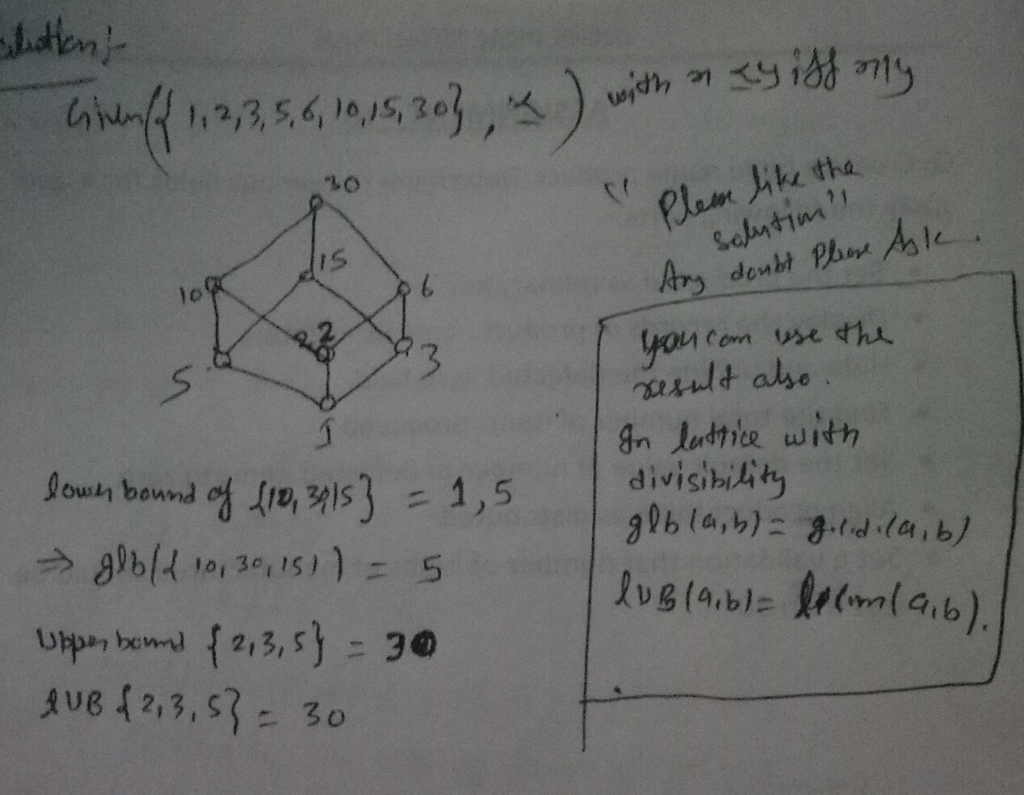 Solution:-
Given ({1,2,3,5,6,10,15,30}, ≤) with x ≤ y iff x|y
"Please like the
solution"
Any doubt Please Ask.
30
15
10
6
2 2
5
3
1
lower bound of {10, 30, 15} = 1, 5
⇒ glb({10, 30, 15}) = 5
Upper bound {2,3,5} = 30
LUB {2,3,5} = 30
you can use the
result also.
In lattice with
divisibility
glb(a,b) = g.c.d.(a,b)
LUB(a,b) = lcm(a,b).